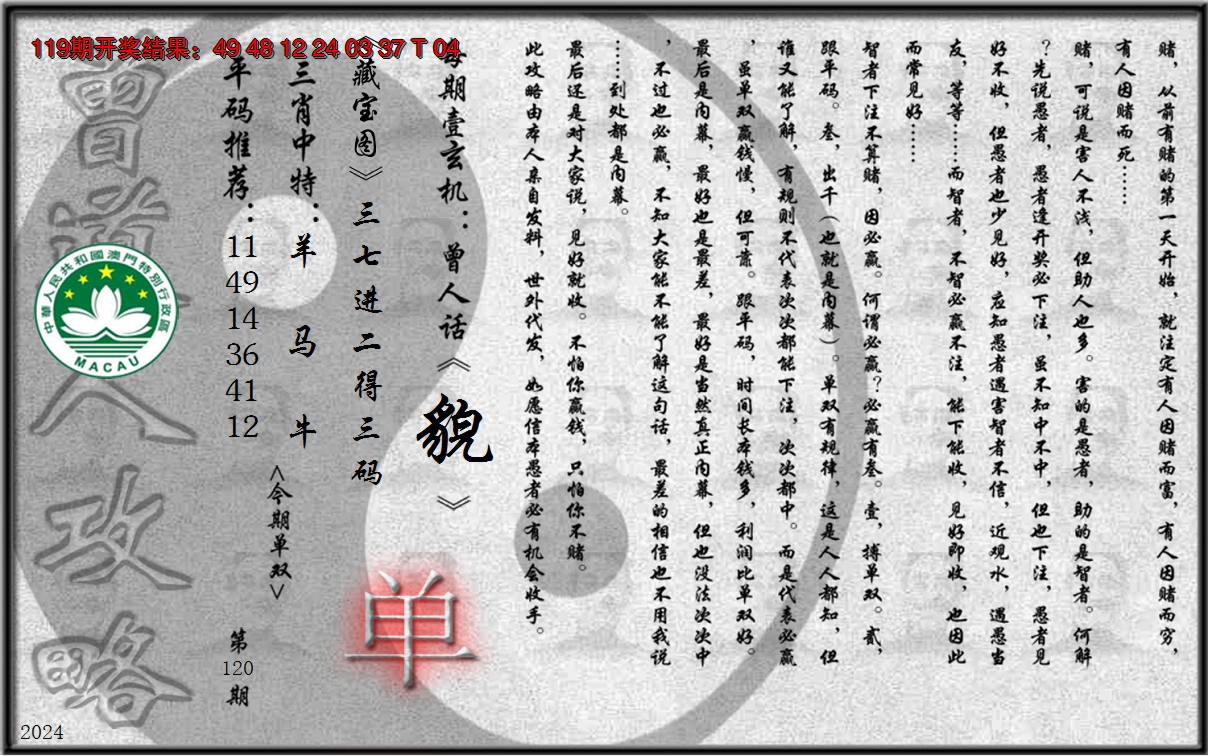 119期开奖结果：49 48 12 24 03 37 T 04
赌，从前有赌的第一天开始，就注定有人因赌而富，有人因赌而穷，
有人因赌而死……
赌，可说是害人不浅，但助人也多。害的是愚者，助的是智者。何解
？先说愚者，愚者逢开奖必下注，虽不知中不中，但也下注，愚者见
好不收，但愚者也少见好，应知愚者遇害智者不信，近观水，遇愚当
友，等等……而智者，不智必赢不注，能下能收，见好即收，也因此
而常见好……
智者下注不算赌，因必赢。何谓必赢？必赢有叁。壹，搏单双。贰，
跟平码。叁，出千（也就是内幕）。单双有规律，这是人人都知，但
谁又能了解，有规则不代表次次都能下注，次次都中。而是代表必赢
，虽单双赢钱慢，但可靠。跟平码，时间长本钱多，利润比单双好。
最后是内幕，最好也是最差，最好是当然真正内幕，但也没法次次中
，不过也必赢，不知大家能不能了解这句话，最差的相信也不用我说
……到处都是内幕。
最后还是对大家说，见好就收。不怕你赢钱，只怕你不赌。
此攻略由本人亲自发料，世外代发，如愿信本愚者必有机会收手。
每期壹玄机：曾人话《貌》
《藏宝图》三七进二得三码
单
三肖中特：羊 马 牛
<今期单双>
平码推荐：11 49 14 36 41 12
第120期
曾道人攻略
中華人民共和國澳門特別行政區
MACAU
2024